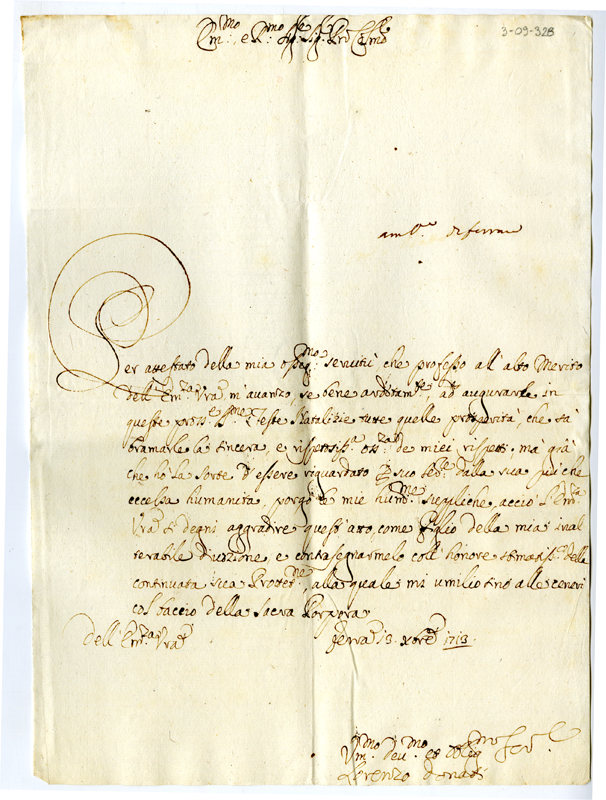 3-09-328
Em:mo e R:mo Sig.re Sig.re Pron Col.mo
Per attestato della mia osseq:ma servitù che professo all'alto Merito
dell'Em:za Vra, m'avanzo, se bene arditam:te, ad augurarle in
queste pross:e S:me Feste Natalizie tutte quelle prosperità, che sà
bramarle la sincera, e rispettosiss:a oss:za de miei rispetti, mà già
che hò la sorte d'essere riguardato suo dalla sua più che
eccelsa humanità, porgo le mie hum:me suppliche, acciò l'Em:za
Vra si degni aggradire quest'atto, come figlio della mia inal
terabile divozione, e contrasegnarmelo coll'honore stimatiss:o della
continuata sua Protet:ne, alla quale mi umilio sino alle ceneri
col baccio della Sacra Porpora
Dell'Em:za Vra Ferra 13 Xbre 1713.
Vm:mo Dev:mo et Oblig:mo Ser:e
Lorenzo Donati